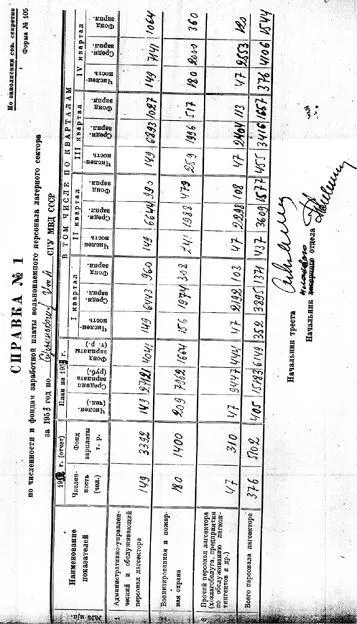 По заполнении сов. секретно
Форма № 105
СПРАВКА № 1
по численности и фондам заработной платы вольнонаемного персонала лагерного сектора
за 1953 год по СГУ МВД СССР
№№ п/п. Наименование показателей 195 г. (отчет) План на 1953 г. В ТОМ ЧИСЛЕ ПО КВАРТАЛАМ
I квартал II квартал III квартал IV квартал
Численность (чел.) Фонд зарплаты т. р. Числен. (чел.) Средн. зарплата (руб.) Фонд зарплаты (т. р.) Численность Средн. зарпл. Фонд зарпл. Числен. Средн. зарпл. Фонд зарпл. Численность Средн. зарпл. Фонд зарпл. Численность Средн. зарпл. Фонд зарпл.
1 Административно-управленческий и обслуживающий персонал лагсектора 149 3392 149 27121 4041 149 6443 960 149 6644 990 149 6893 1027 149 7141 1064
2 Военизированная и пожарная охрана 180 1400 209 7962 1664 156 1974 308 241 1988 479 259 1996 517 180 2000 360
3 Прочий персонал лагсектора (хозлагобслуга, предприятия по обслуживанию лагконтингентов и др.) 47 310 47 9447 444 47 2192 103 47 2298 108 47 2404 113 47 2553 120
Всего персонала лагсектора 376 5102 405 15183 6149 352 3895 1371 437 3609 1577 455 3416 1657 376 4106 1544
Начальник треста
Начальник отдела